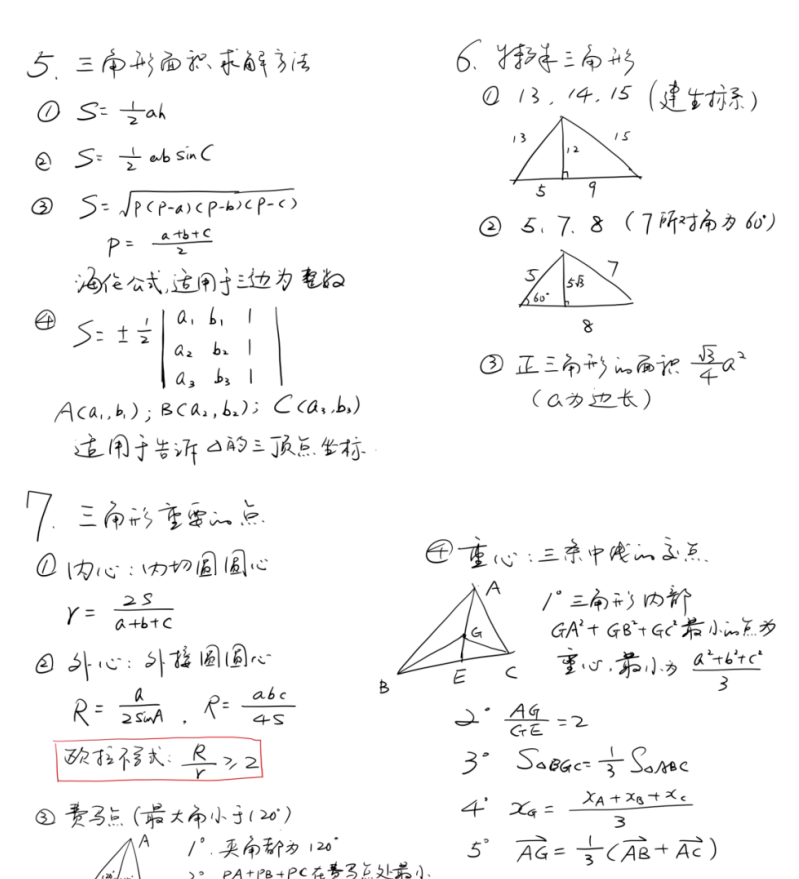 5. 三角形面积求解方法
① S= 1/2 ah
② S= 1/2 ab sinC
③ S=√P(P-a)(P-b)(P-c)
P= a+b+c / 2
海伦公式,适用于三边为整数
④ S= ± 1/2 | a₁ b₁ 1 |
| a₂ b₂ 1 |
| a₃ b₃ 1 |
A(a₁,b₁); B(a₂,b₂); C(a₃,b₃)
适用于告诉△的三顶点坐标.
6. 特殊三角形
① 13, 14, 15 (建坐标系)
13 12 15
5 9
② 5、7、8 (7所对角为60°)
5 5√3 7
60°
8
③ 正三角形的面积 √3/4 a²
(a为边长)
7. 三角形重要的点
① 内心: 内切圆圆心
r= 2S / a+b+c
② 外心: 外接圆圆心
R= a / 2sinA , R= abc / 4S
欧拉不等式: R/r ≥ 2
③ 费马点 (最大角小于120°)
A
1° 夹角都为120°
2° PA+PB+PC在费马点处最小
④ 重心: 三条中线的交点
A
G
B E C
1° 三角形内部
GA²+GB²+GC²最小的点为
重心,最小为 a²+b²+c² / 3
2° AG/GE =2
3° S△BGC= 1/3 S△ABC
4° x_G = x_A+x_B+x_C / 3
5° AG→ = 1/3 (AB→ + AC→)